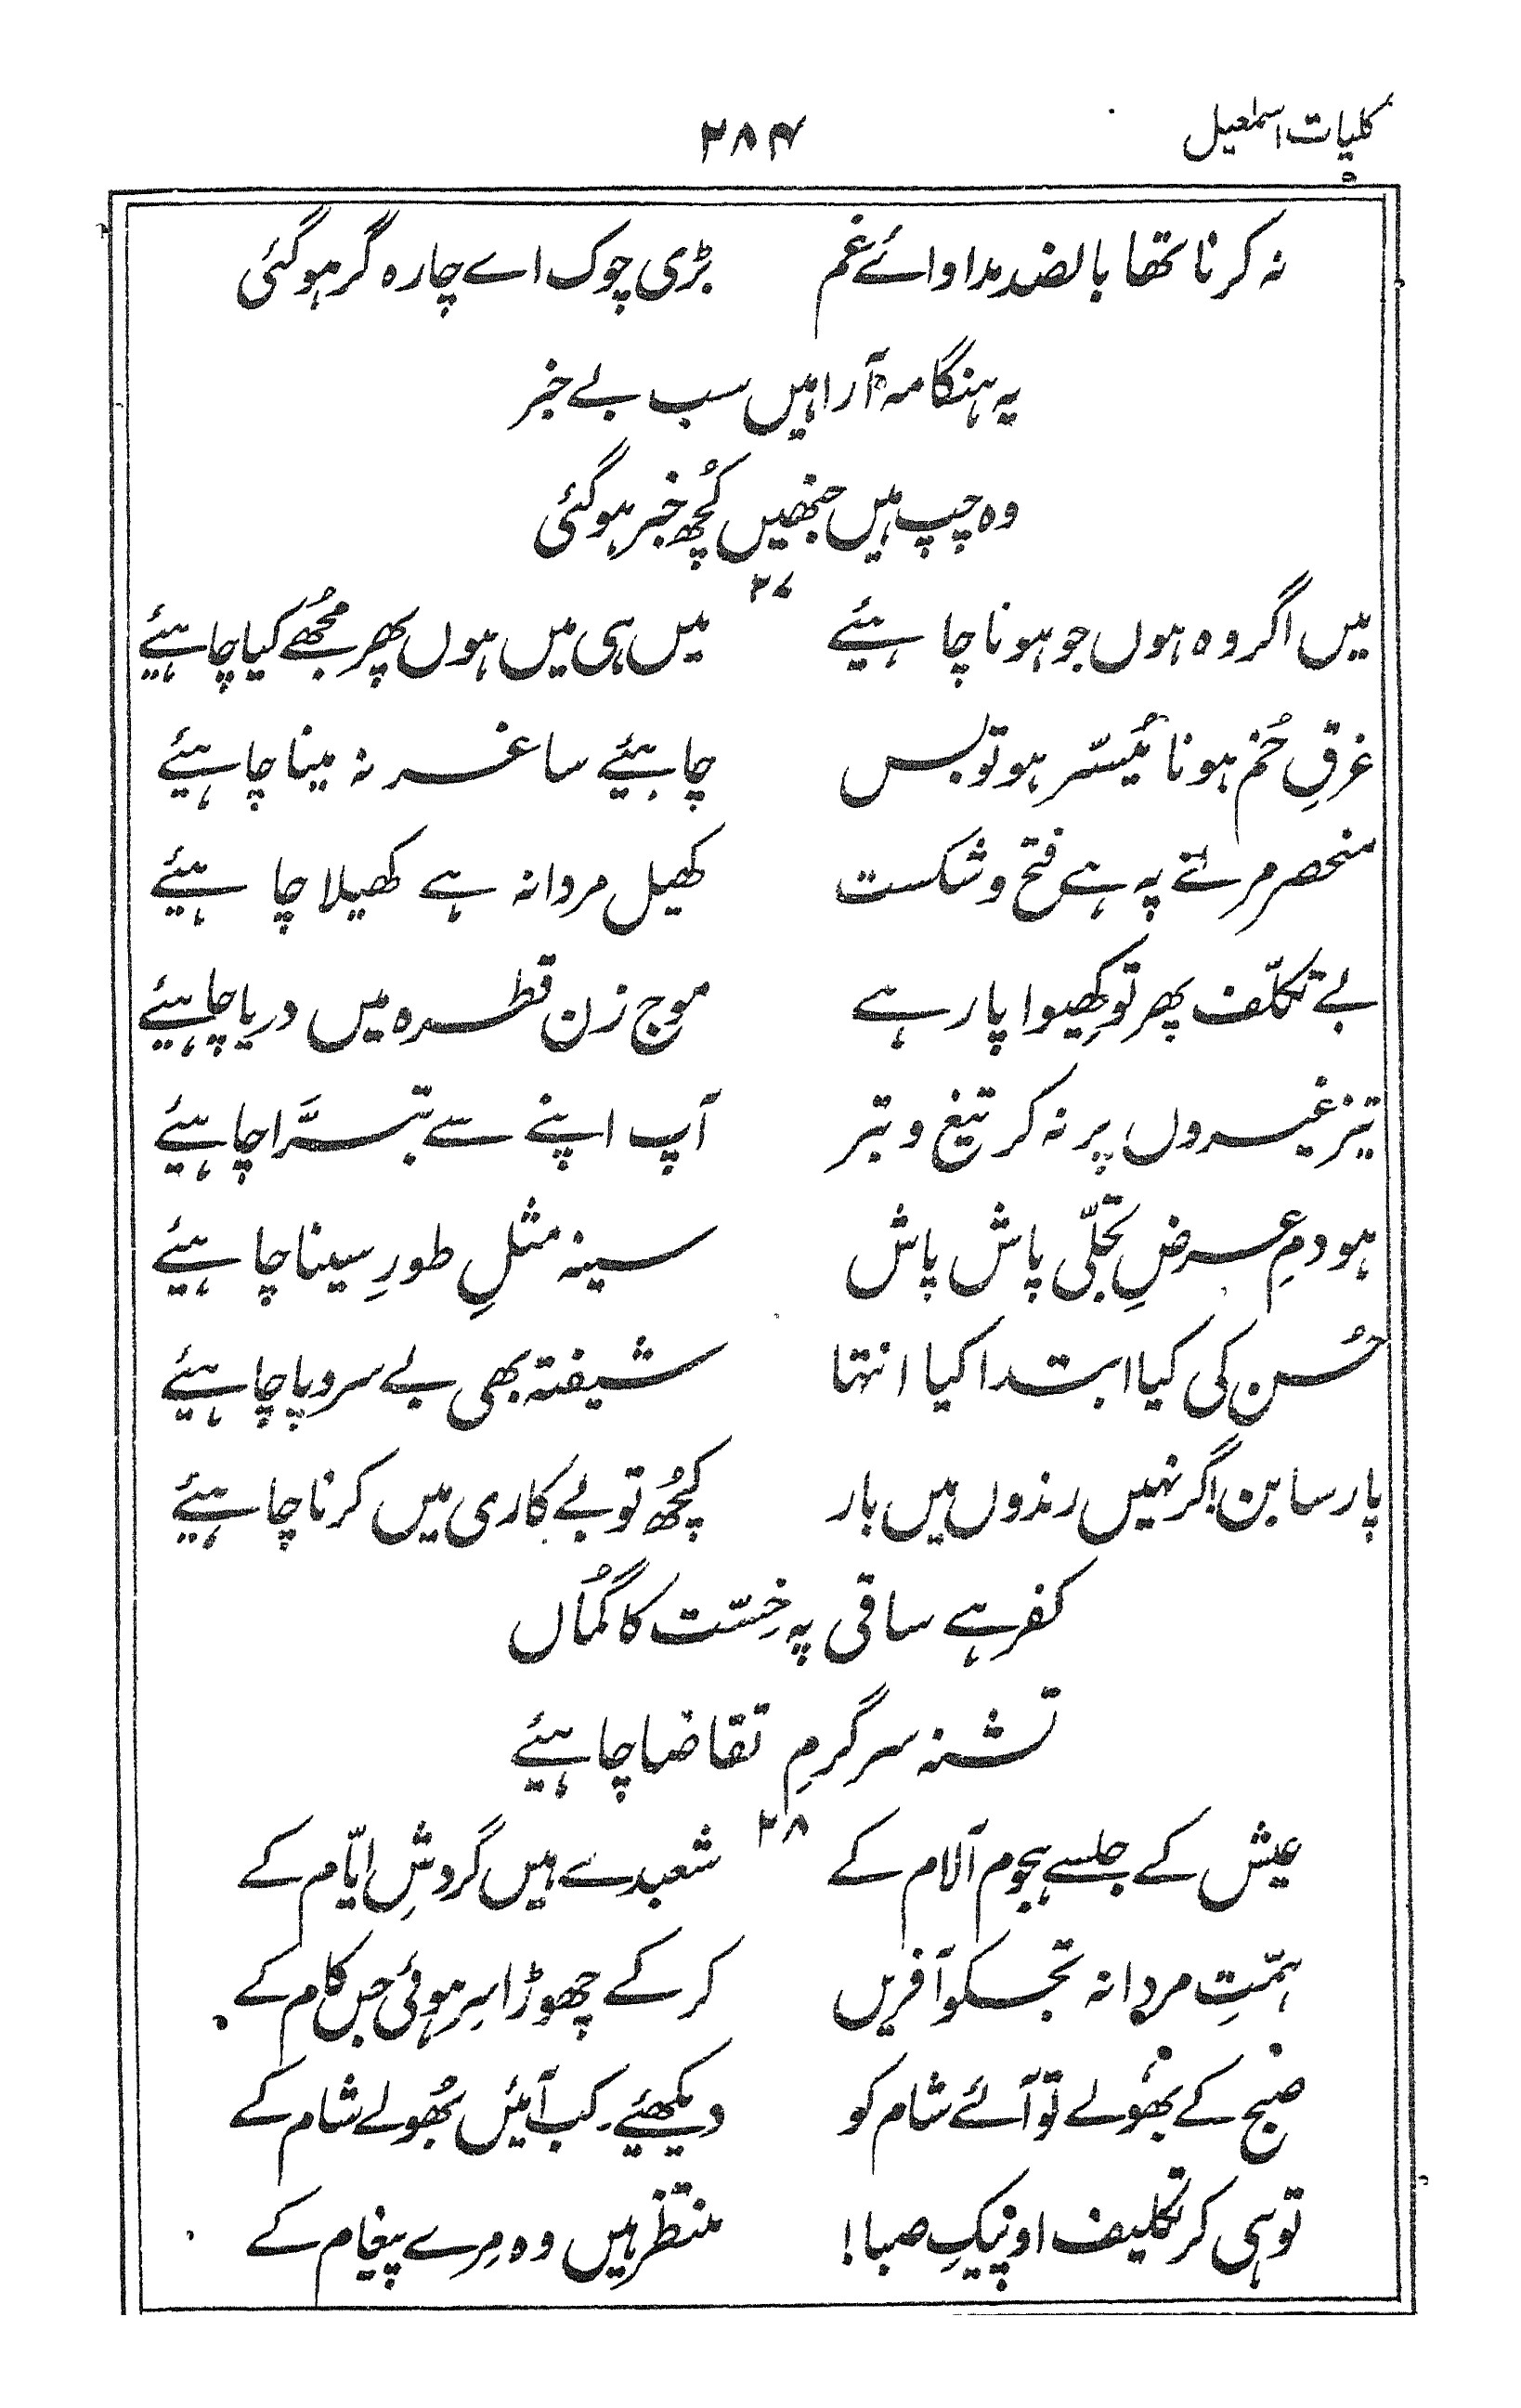 کلیات اسمٰعیل ۲۸۴
نہ کرنا تھا بالضد مداوائے غم بڑی چوک اے چارہ گر ہوگئی
یہ ہنگامہ آرا ہیں سب بے خبر
وہ چپ ہیں جنھیں کُچھ خبر ہوگئی
۲۷
میں اگر وہ ہوں جو ہونا چاہیئے میں ہی میں ہوں پھر مُجھے کیا چاہیئے
غرقِ خُم ہونا مُیسّر ہو تو بس چاہیئے ساغر نہ مینا چاہیئے
منحصر مرنے پہ ہے فتح و شکست کھیل مردانہ ہے کھیلا چاہیئے
بے تکلّف پھر تو کھِیوا پار ہے موج زن قطرہ میں دریا چاہیئے
تیز غیروں پر نہ کر تیغ و تبر آپ اپنے سے تبرَّا چاہیئے
ہو دمِ عرضِ تجلّی پاش پاش سینہ مثلِ طورِ سینا چاہیئے
حُسن کی کیا ابتدا کیا انتہا شیفتہ بھی بے سر و پا چاہیئے
پارسا بن اگر نہیں رندوں میں بار کُچھ تو بے کاری میں کرنا چاہیئے
کفر ہے ساقی پہ خِسّت کا گُماں
تشنہ سرگرمِ تقاضا چاہیئے
۲۸
عیش کے جلسے ہجوم آلام کے شعبدے ہیں گردشِ ایّام کے
ہمّتِ مردانہ تجکو آفریں کر کے چھوڑا سِر ہوئی جس کام کے
صبح کے بھُولے تو آئے شام کو دیکھئیے۔ کب آئیں بھُولے شام کے
تو ہی کر تکلیف او پَیکِ صبا! منتظر ہیں وہ مِرے پیغام کے